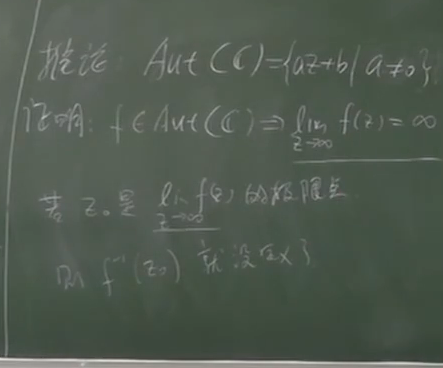 推论: Aut(C)={az+b| a≠0}
证明: f∈Aut(C)⇒lim_{z→∞} f(z)=∞
若 z₀是 lim_{z→∞} f(z) 的极限点
则 f⁻¹(z₀) 就没定义了